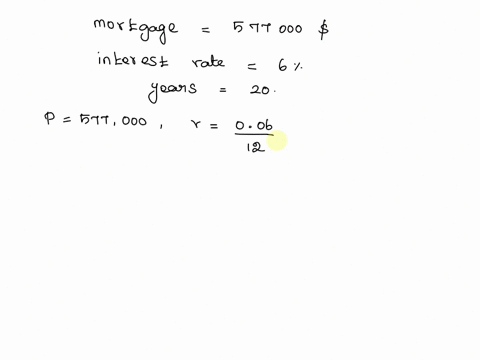 mortgage = 577000 $
interest rate = 6%
years = 20.
P = 577,000, r = 0.06/12